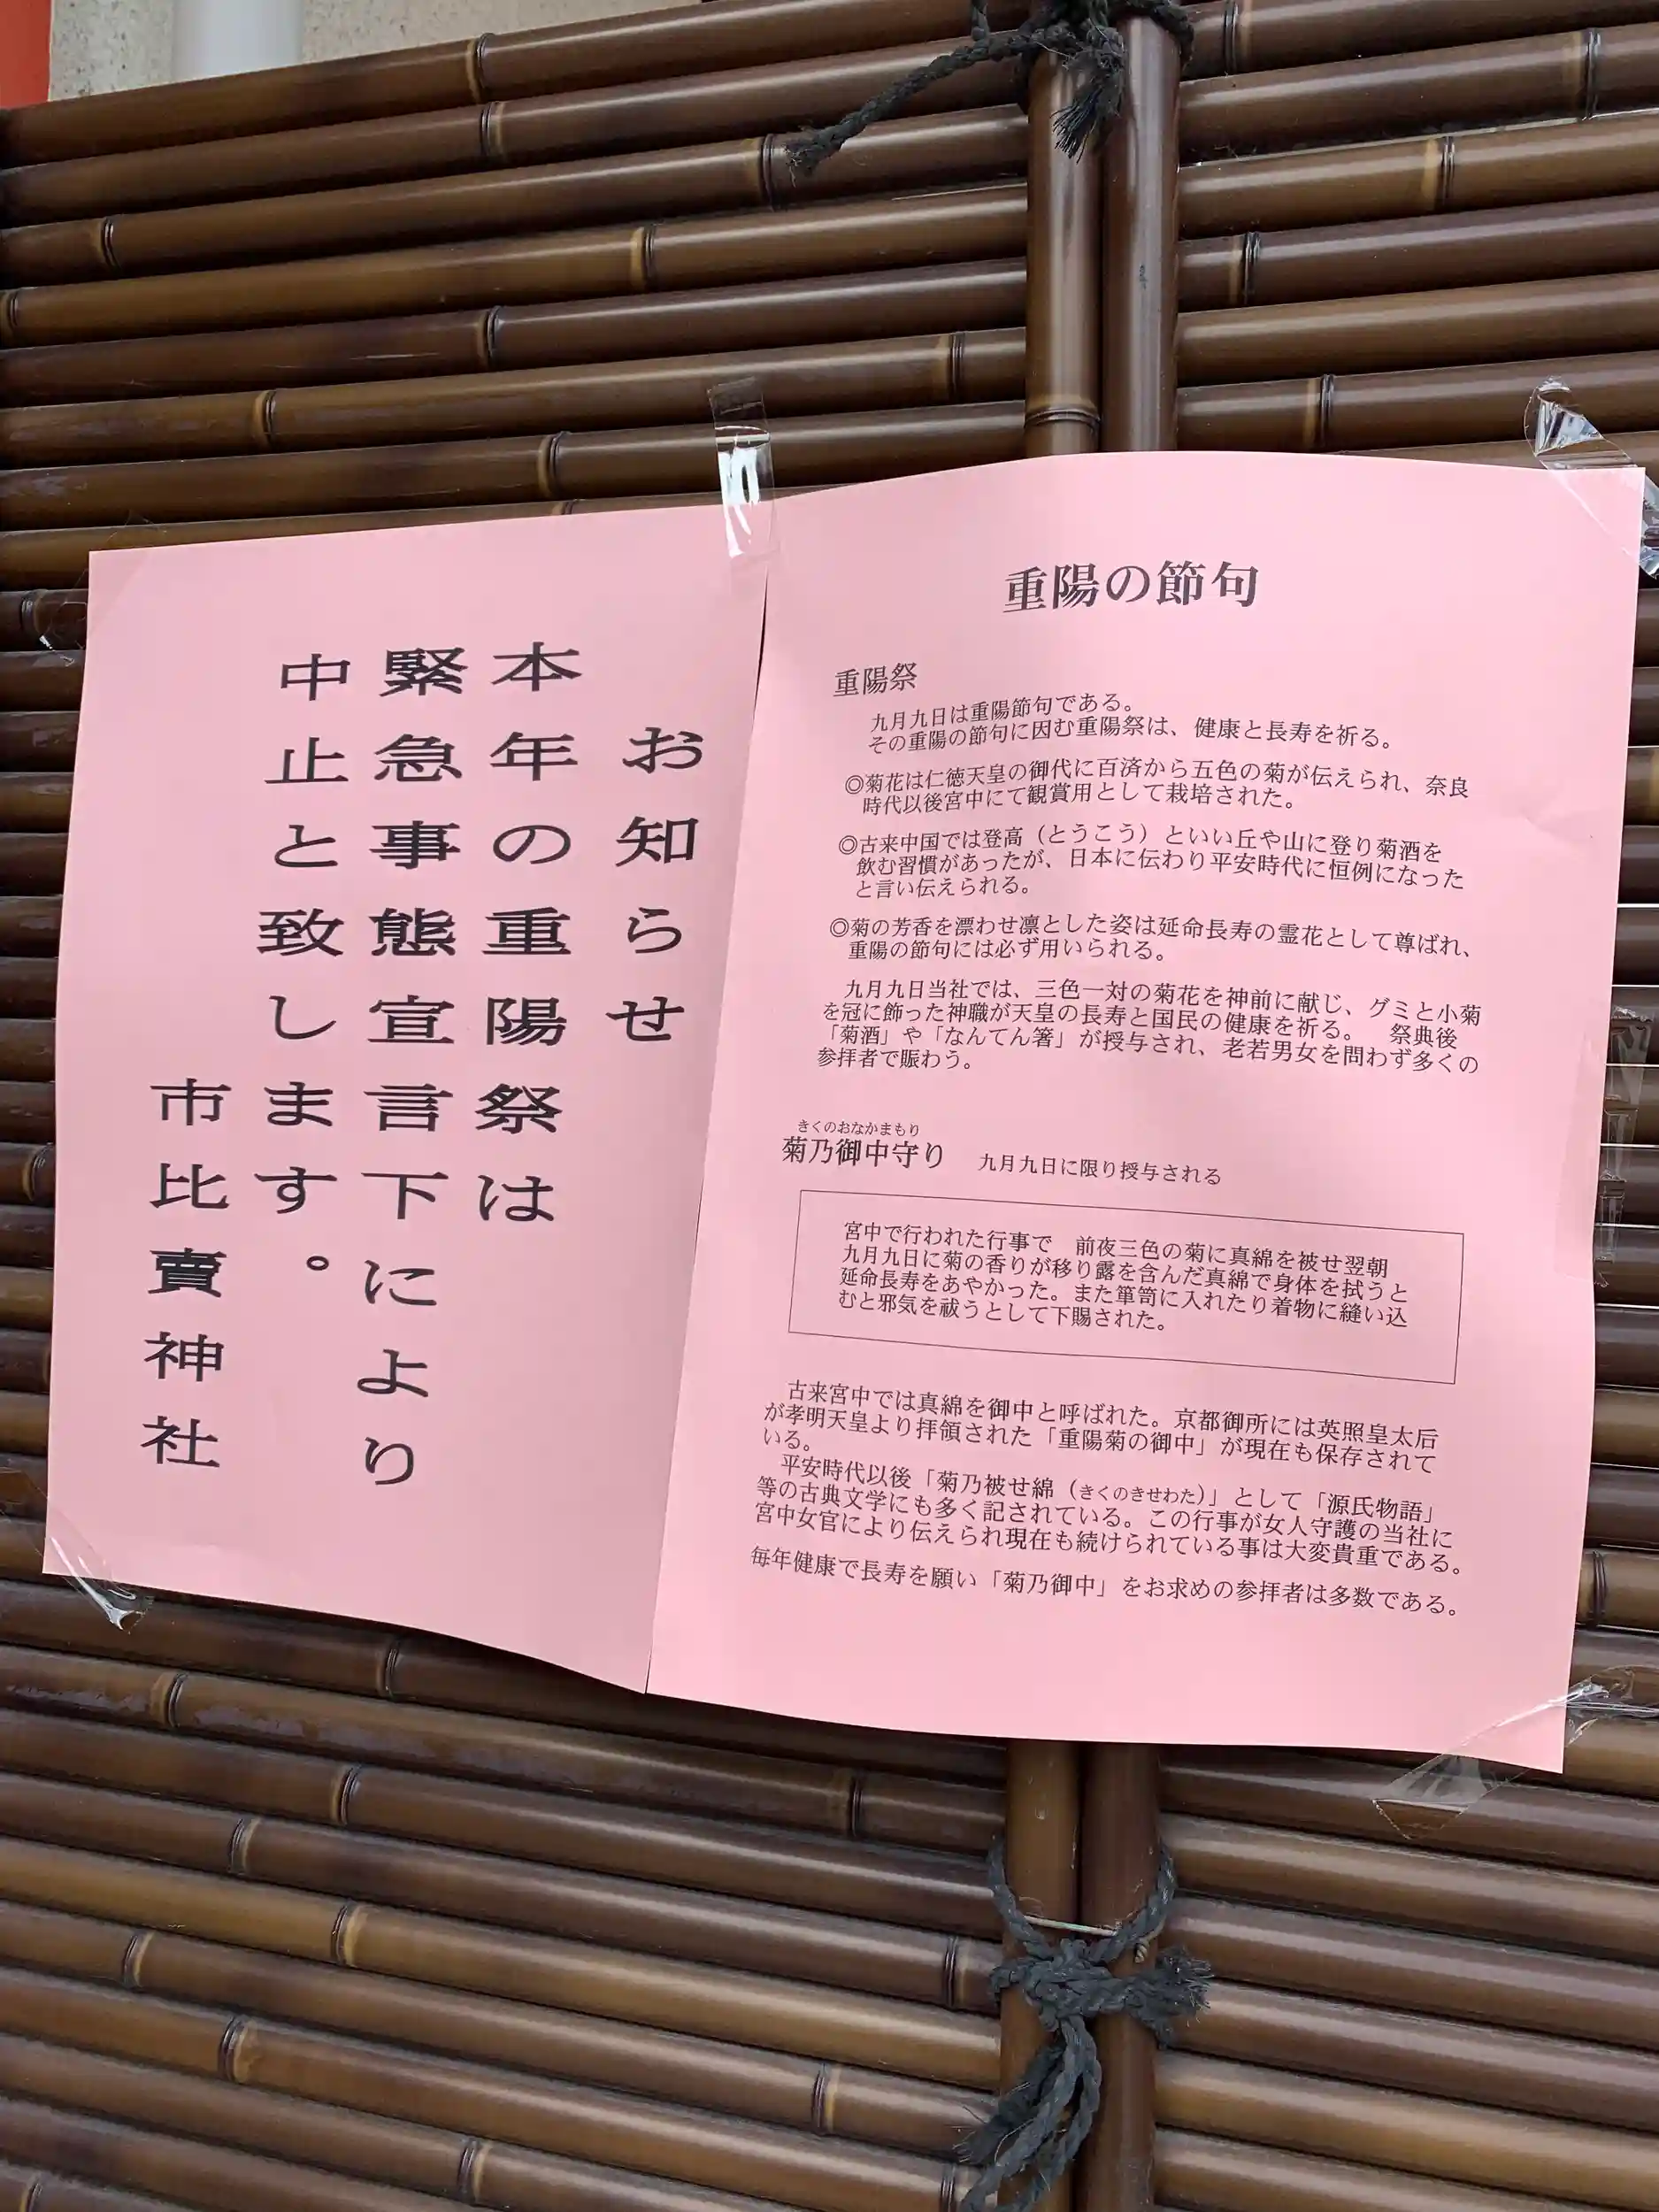 重陽の節句
重陽祭
九月九日は重陽節句である。
その重陽の節句に因む重陽祭は、健康と長寿を祈る。
◎菊花は仁徳天皇の御代に百済から五色の菊が伝えられ、奈良
時代以後宮中にて観賞用として栽培された。
◎古来中国では登高（とうこう）といい丘や山に登り菊酒を
飲む習慣があったが、日本に伝わり平安時代に恒例になった
と言い伝えられる。
◎菊の芳香を漂わせ凛とした姿は延命長寿の霊花として尊ばれ、
重陽の節句には必ず用いられる。
九月九日当社では、三色一対の菊花を神前に献じ、グミと小菊
を冠に飾った神職が天皇の長寿と国民の健康を祈る。　祭典後
「菊酒」や「なんてん箸」が授与され、老若男女を問わず多くの
参拝者で賑わう。
きくのおなかまもり
菊乃御中守り　九月九日に限り授与される
宮中で行われた行事で　前夜三色の菊に真綿を被せ翌朝
九月九日に菊の香りが移り露を含んだ真綿で身体を拭うと
延命長寿をあやかった。また箪笥に入れたり着物に縫い込
むと邪気を祓うとして下賜された。
古来宮中では真綿を御中と呼ばれた。京都御所には英照皇太后
が孝明天皇より拝領された「重陽菊の御中」が現在も保存されて
いる。
平安時代以後「菊乃被せ綿（きくのきせわた）」として「源氏物語」
等の古典文学にも多く記されている。この行事が女人守護の当社に
宮中女官により伝えられ現在も続けられている事は大変貴重である。
毎年健康で長寿を願い「菊乃御中」をお求めの参拝者は多数である。
お知らせ
本年の重陽祭は
緊急事態宣言下により
中止と致します。
市比賣神社